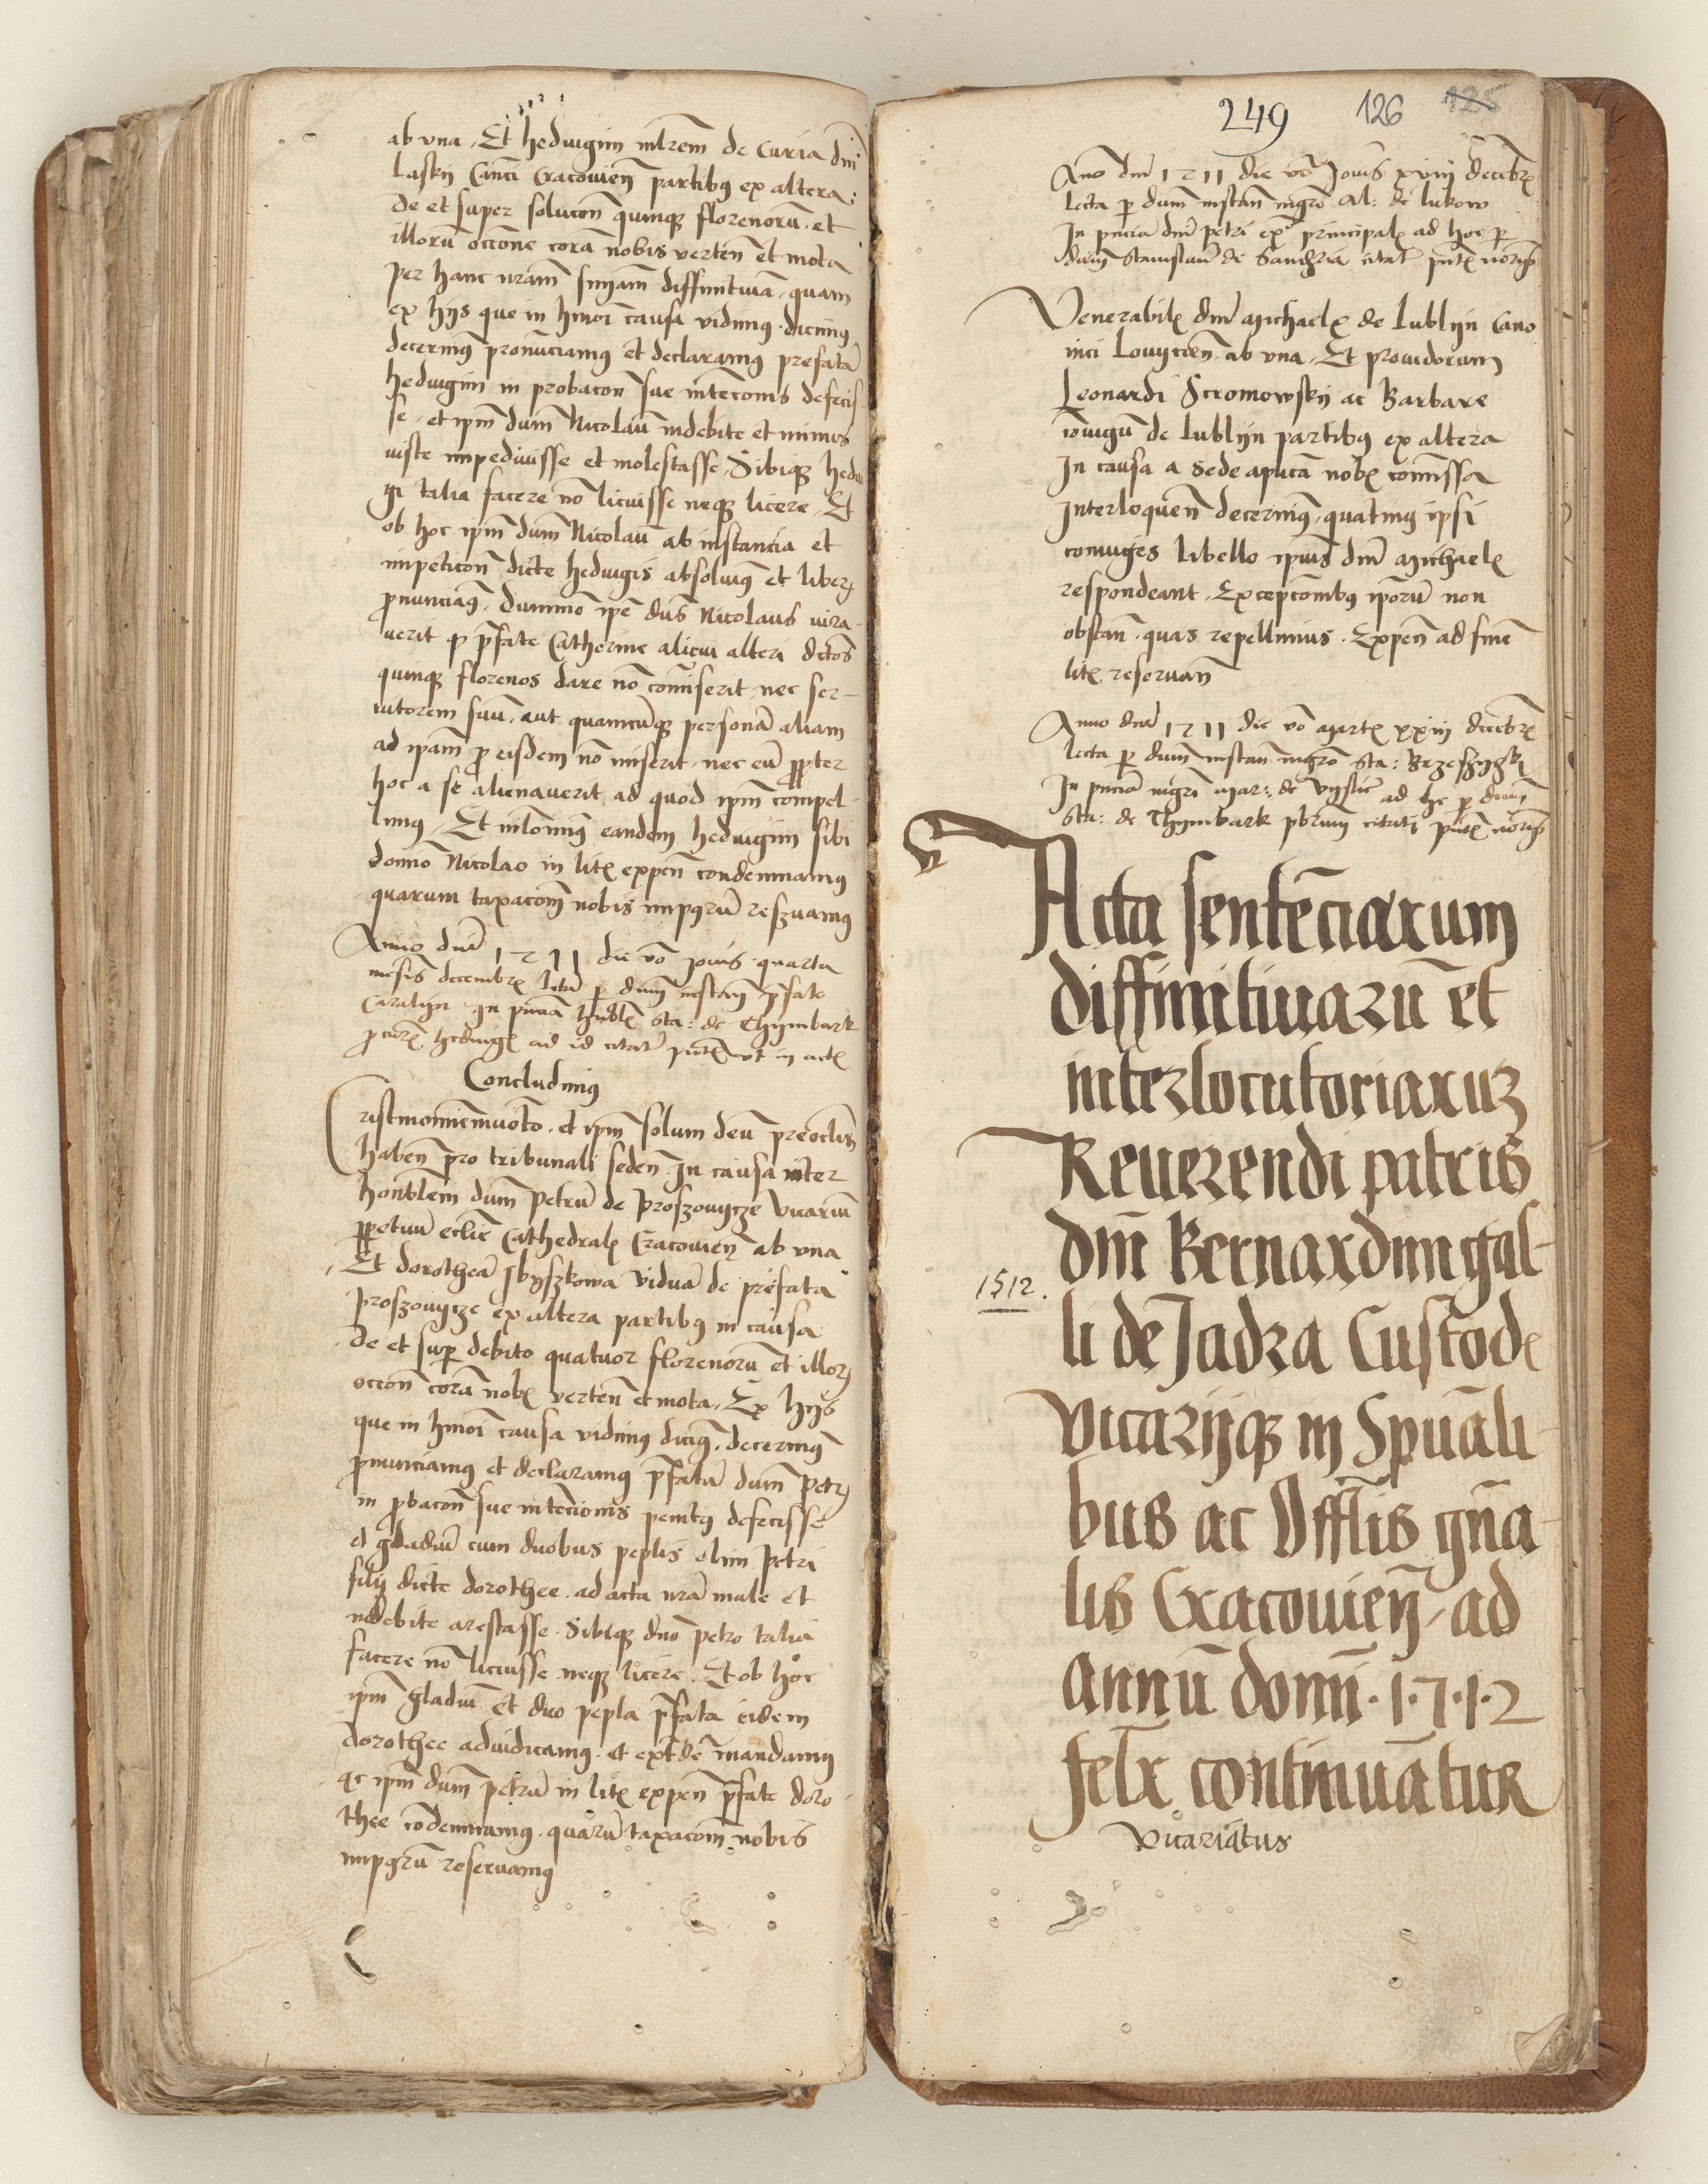 ab vna, Et hedwigim mlrem de Curia dni
Lasky Canci Cracouien partibus ex altera:
de et super solucon quinque florenorū et
illorū occōne corā nobis verten et mota
per hanc nram snyam diffinitiuā, quam
ex hijs que in hmoi causa vidimus dicimus
decernimus pronūciamus et declaramus prefatā
hedwigim in probacon sue intēcionis defecis
se, et ipm dum Nicolaū indebite et minus
iuste impediuisse et molestasse, Sibique hedwi
gi talia facere nō licuisse neque licere, Et
ob hoc ipm dum Nicolaū ab instancia et
impeticon dicte hedwigis absoluimus et liberū
pronunciamus, dummō ipe dus Nicolaus iura
uerit qp pfate Catherine alicui alteri dictos
quinque florenos dare nō comiserit, nec ser-
uitorem suū, aut quamcūque personā aliam
ad ipam pro eisdem nō miserit, nec eū propter
hoc a se alienauerit, ad quod ipm compel-
limus, Et nilominus eandem hedwigim sibi
domō Nicolao in litis expen condemnamus
quarum taxacom nobis impqrū reszuamus
Anno dni 1511 die vo Jouis quarta
mēsis decembris lcta p dum instan pfate
Carilijn In pncia hnblis sta: de Thymbark
pcuris hedwigis ad id citati pnts vt in actis
Concludimus
Cristinomieinuoto, et ipm solum deū preoculis
haben pro tribunali seden In causa inter
honblem dum Petrū de Proszouycze vicariū
perpetuū ecclie Cathedralis Cracouien ab vna
Et dorotheā Jbyszkowa viduā de prefata
Proszouycze ex altera partibus in causa
de et super debito quatuor florenorū et illorum
occon corā nobis verten et mota, Ex hijs
que in hmoi causa vidimus dicimus, decernimus
pnunciamus et declaramus pfatū dum Petrum
in pbacon sue intēcionis penitus defecisse
et gladiū cum duobus peplis olim Petri
filij dicte dorothee, ad acta nra male et
indebite arestasse, Sibique dno petro talia
facere nō licuisse neque licere, Et ob hoc
ipm gladiū et duo pepla pfata eidem
dorothee adiudicamus, et extde mandamus
ac ipm dum petrū in litis expen pfate doro
thee cōdemnamus, quarū taxacom nobis
impqrū reseruamus
249 126 125
Anno dni 1511 die vo Jouis xviij decēbris
lecta p dum instan mgro Al: de lukow
In pncia dni petri ex principalis ad hoc p
dum Stanislaū de Sandzia citati pnts noris
Venerabilis dni Michaelis de Lublijn Cano
nici Louycien ab vna, Et prouidorum
Leonardi Stromowsky ac Barbare
cōiugū de Lublijn partibus ex altera
In causa a Sede aplica nobis comissa
Interloquen decernimus, quatinus ipsi
coniuges libello ipius dni Michaelis
respondeant, Exceptōnibus iporū non
obstan, quas repellimus, Expen ad finē
litis reseruan
Anno dni 1511 die vo Martis xxiij decēbris
lecta p dum instan mgro Sta: Brzeszyzky
In pncia mgri Mar: de Vyslic ad hc p dum
Sta: de Thymbark pbrum citati pnts noris
Acta sentēciarum
diffinitiuarū et
interlocutoriarum
Reuerendi patris
dni Bernardini gal-
1512.
li de Jadra Custodis
vicarijque in Spūali
bus ac Offlis gna
lis Cracouien, ad
annū domi · 1 · 5 · 1 · 2
felix continuātur
vicariatus